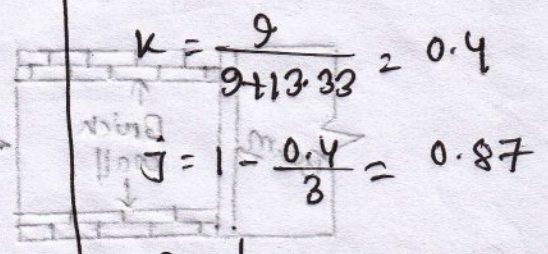 K = 9 / 9+13.33 = 0.4
j = 1 - 0.4 / 3 = 0.87